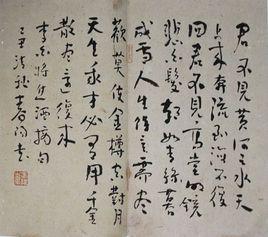 君不見黃河之水天
上来奔流到海不復
回君不見高堂明鏡
悲白髮朝如青絲暮
成雪人生得意須盡
歡莫使金樽空對月
天生我才必有用千金
散盡還復来
李白將進酒摘句